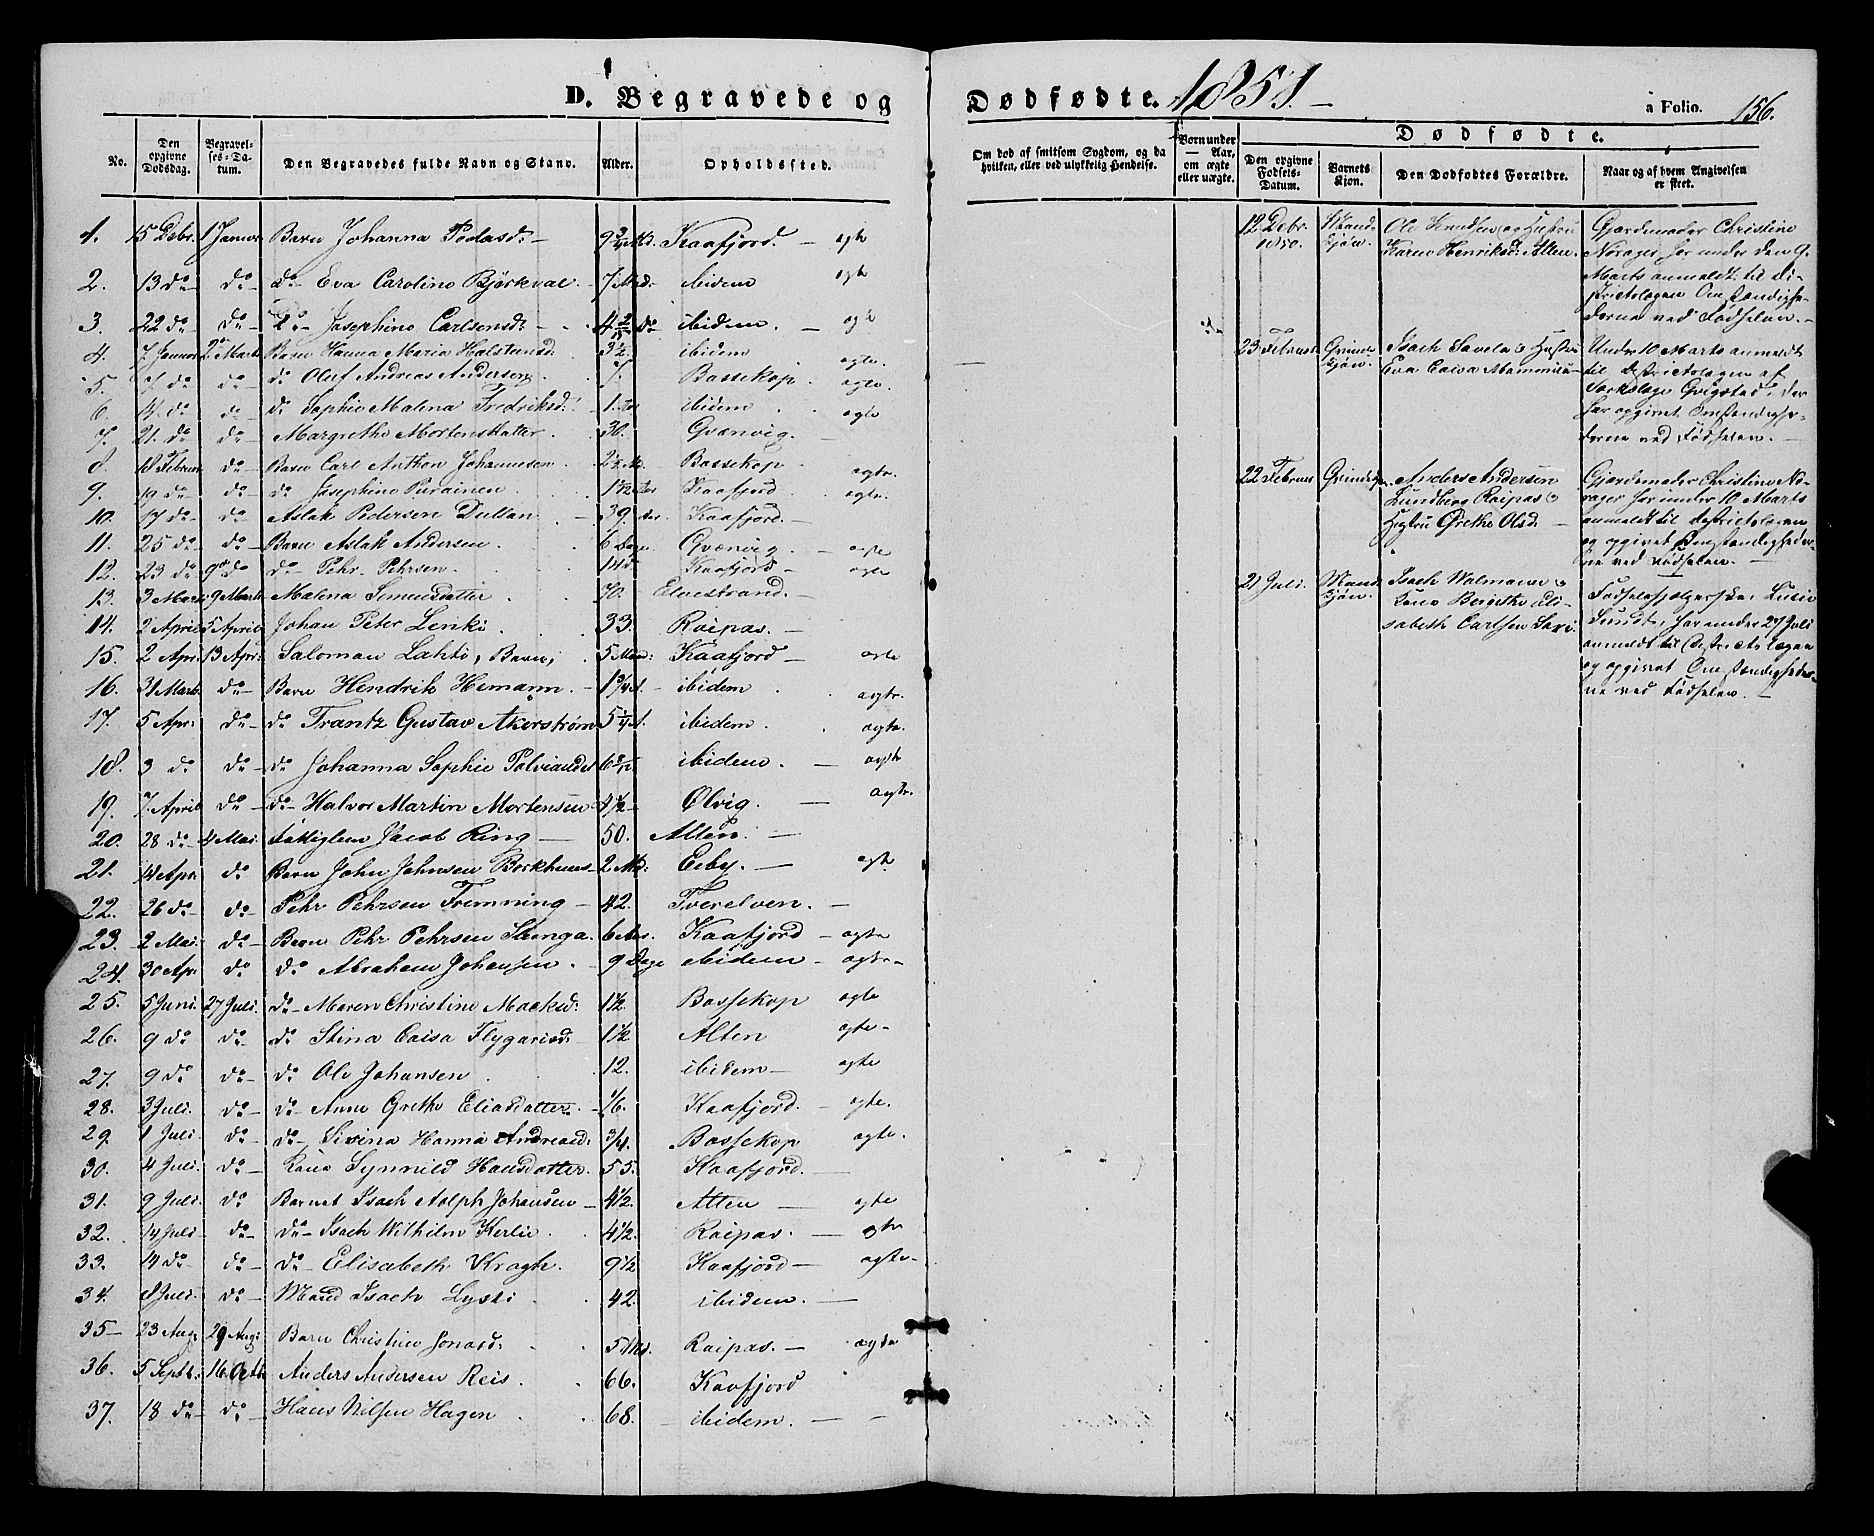 D. Begravede og Dødfødte. 1851. — a Folio. 156.
No. | Den opgivne Dødsdag. | Begravelses-Datum. | Den Begravedes fulde Navn og Stand. | Alder. | Opholdssted.
Om død af smitsom Sygdom, og da hvilken, eller ved ulykkelig Hendelse. | Børn under — Aar, om ægte eller uægte. | Dødfødte. | Den opgivne Fødsels-Datum. | Barnets Kjøn. | Den Dødfødtes Forældre. | Naar og af hvem Angivelsen er skeet.
1. 15 Debr. 1 Januar Barn Johanna — 9 3/4 Md. Kaafjord. — ægte
2. 13 do — do — do — Eva Caroline Björkval. 7 Md. ibidem ægte
3. 22 do — do — do — Josephine Carlsensd: — 4 do ibidem. — ægte
4. 7 Januar 2 Marts Barn Hanna Maria Halstensd: 3 1/2 ibidem ægte.
5. do — do — do Oluf Andreas Andersen. Bossekop. ægte.
6. 14. do do — do Sophie Malena Fredriksd: 1. ibidem. ægte
7. 21. do do — Margrethe Mortensdatter. 30. Qvænvig. —
8. 18 Februar do — Barn Carl Anthon Johannesen. 2 1/2 Md. Bossekop. ægte.
9. 19 do — do — do Josephine Purainen. 1 1/2 Kaafjord ægte.
10. 17 do — do — Aslak Pedersen — 39. Kaafjord. —
11. 25 do — do — Barn Aslak Andersen. 6 Dage. Qvænvig — ægte
12. 23 do — do do — Pehr Pehrsen. 14 d Kaafjord — ægte
13. 3 Marts 9 Marts Malena Simensdatter. 70. Elvestrand. —
14. 2 April 5 April Johan Peter Lenki 33. Raipas. —
15. 2 Apr: 13 Apr: Salomon Lahti, Barn, 5 Maan: Kaafjord — ægte
16. 31 Marts do — Barn Hendrik Hemann. — 1 3/4 A. — ibidem. ægte.
17. 5 Apr: do — do Frantz Gustav Akerstrøm 5 1/4 A. ibidem. ægte.
18. 3 do do — do Johanna Sophie 6 ibidem. — ægte
19. 7. April do — do — Halvor Martin Mortensen 4 1/2 Ølvig. — ægte.
20. 28 do — 4 Mai. Fattiglem Jacob Ring — 50. Alten. —
21. 14 Apr: do Barn John Johnsen 2 Md: Eiby. — ægte.
22. 26 do — do — Pehr Pehrsen Fremning — 42. Tverelven. —
23. 2 Mai. do — Barn Pehr Pehrsen 6 Kaafjord — ægte
24. 30 Apr: do do Abraham Johansen. — 9 Dage ibidem — ægte —
25. 5 Juni. 27 Juli. do — Maren Christine Macksd: 1 1/2 Bossekop ægte
26. 9 do do — do Stina Caisa Flygarisd: 1 1/2 Alten ægte —
27. 9 do do — do Ole Johansen. 12. ibidem — ægte
28. 3 Juli. do — do — Anne Grethe Eliasdatter. 16. Kaafjord. — ægte.
29. 1 Juli. do — do — Hanna Andreasd: 3/4. Bossekop ægte.
30. 4 Juli. do — Kone Synnild Hansdatter. 55. Kaafjord. —
31. 9 Juli. do Barnet Isach Adolph Johansen — 4 1/2. Alten — ægte
32. 14 Juli. do — do — Isach Wilhelm Kerlie. 4 1/2. Raipas. — ægte
33. 14 do — do — do — Elisabeth Krogh. 9 1/2 Kaafjord — ægte —
34. 8 Juli. do — Mand Isach Lyski. 42. ibidem. —
35 — 23 Aug: 29 Aug: Barn Christine Jonasd: 5 Md. Raipas. — ægte
36. 5 Septb: 16. Octb. Anders Andersen Reis. 66. Kaafjord
37. 18 do — do — Hans Nilsen Hagen. 68. — ibidem. — —
12 Debr. 1850. | Mand-kjøn. | Ole Knudsen og Hustru Karen Henriksd: Alten. | Gjordemoder Christine Norager har under den 9. Marts anmeldt til Districtslægen Omstændighederne ved Fødselen. —
23 Februar | Qvinde-kjøn. | Isach Savela & Hustru Eva Caisa | Under 10 Marts anmeldt til Districtslægen af Qvigstad, der har opgivet Omstændighederne ved Fødselen. —
22 Februar | Qvindekj. | Anders Andersen Lundberg Raipas & Hustru Grethe Olsd. — | Gjordemoder Christine Norager har under 10 Marts anmeldt til Districtslægen og opgivet Omstændighederne ved Fødselen. —
21 Juli. | Mand-kjøn. | Isach & Kone Birgithe Elisabeth Carlsen | Fødselshjælperske har under 27 Juli anmeldt til Districtslægen og opgivet Omstændighederne ved Fødselen. —